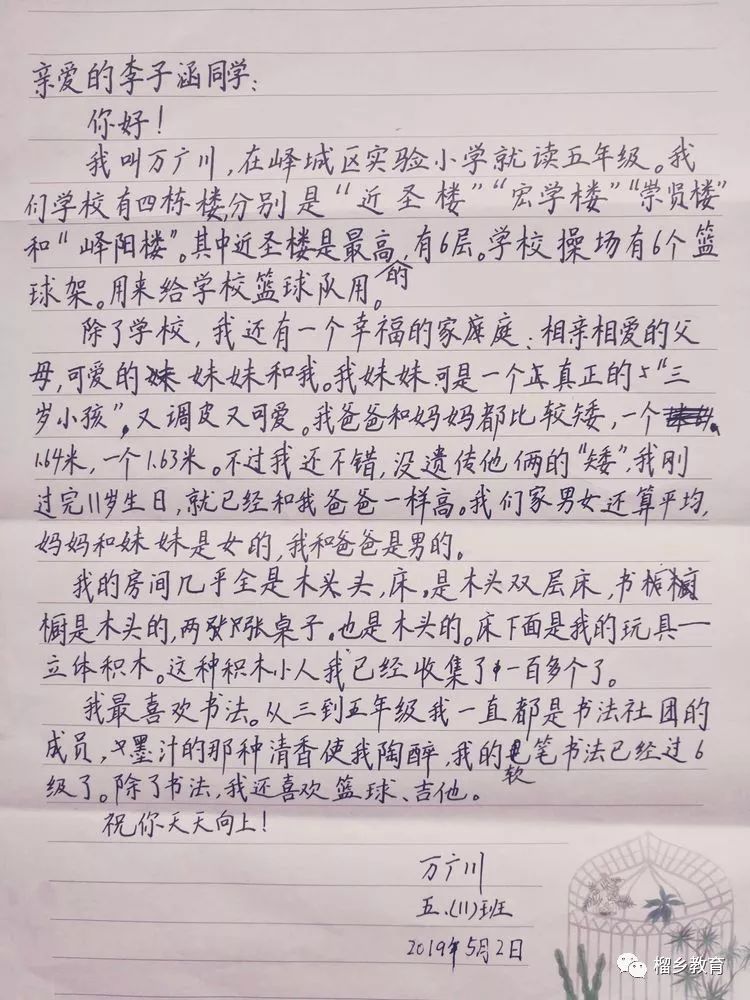 亲爱的李子涵同学:
你好!
我叫万广川,在峄城区实验小学就读五年级。我
们学校有四栋楼,分别是“近圣楼”“宏学楼”“崇贤楼”
和“峄阳楼”。其中近圣楼是最高的,有6层。学校操场有6个篮
球架。用来给学校篮球队用。
除了学校,我还有一个幸福的家庭:相亲相爱的父
母,可爱的妹妹和我。我妹妹可是一个真正的“三
岁小孩”,又调皮又可爱。我爸爸和妈妈都比较矮,一个
1.64米,一个1.63米。不过我还不错,没遗传他俩的“矮”,我刚
过完11岁生日,就已经和我爸爸一样高。我们家男女还算平均,
妈妈和妹妹是女的,我和爸爸是男的。
我的房间几乎全是木头,床,是木头双层床,书
橱是木头的,两张桌子。也是木头的。床下面是我的玩具一
立体积木。这种积木小人我已经收集了一百多个了。
我最喜欢书法。从三到五年级我一直都是书法社团的
成员,墨汁的那种清香使我陶醉,我的软笔书法已经过6
级了。除了书法,我还喜欢篮球、吉他。
祝你天天向上!
万广川
五.(11)班
2019年5月2日
榴乡教育